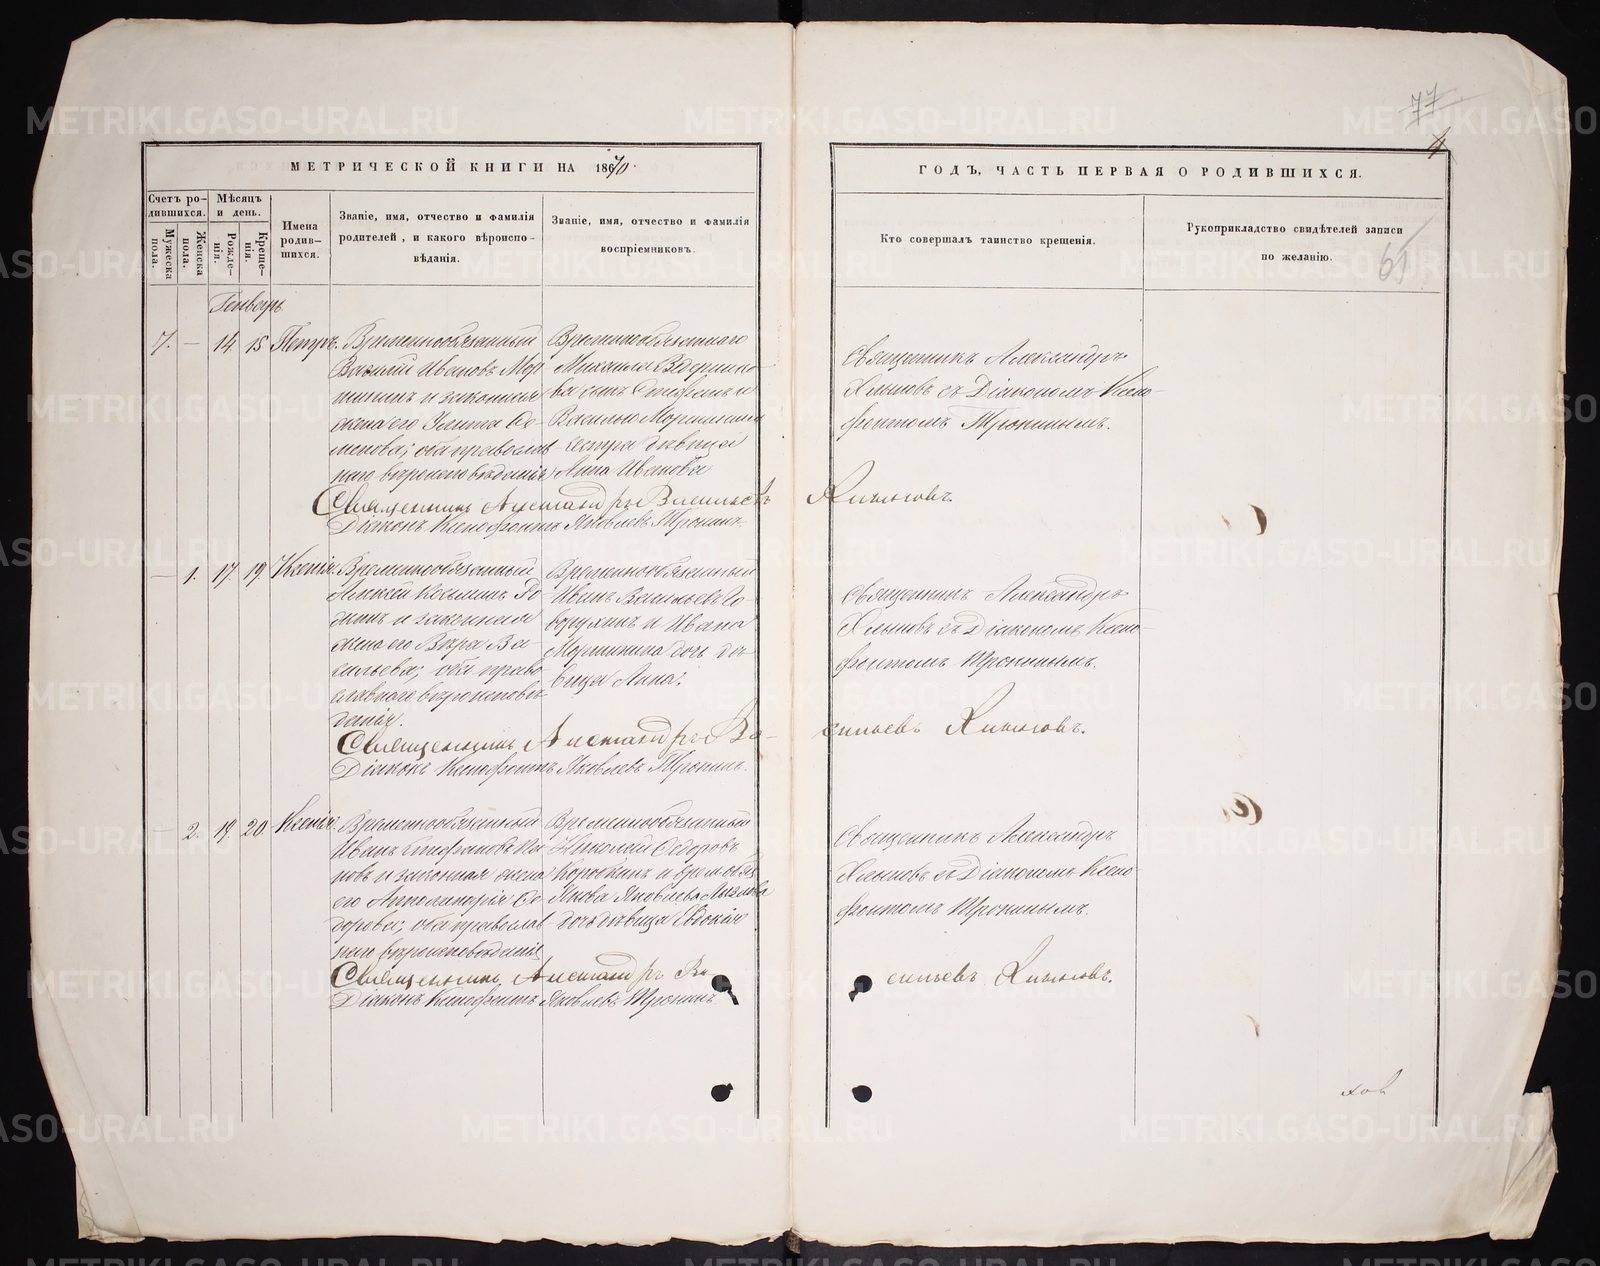 77
4
МЕТРИЧЕСКОЙ КНИГИ НА 1870.
ГОДЪ, ЧАСТЬ ПЕРВАЯ О РОДИВШИХСЯ.
Счетъ ро-
дившихся.
Мужеска
пола.
Женска
пола.
Мѣсяцъ
и день.
Рожде-
нія.
Креще-
нія.
Имена
родив-
шихся.
Званіе, имя, отчество и фамилія
родителей, и какого вѣроиспо-
вѣданія.
Званіе, имя, отчество и фамилія
воспріемниковъ.
Кто совершалъ таинство крещенія.
Рукоприкладство свидѣтелей записи
по желанію.
65
Генварь
7. — 14. 15. Петръ.
Временнообязанный
Василій Ивановъ Мор
шининъ и законная
жена его Улита Се-
менова; оба православ
наго вѣроисповѣданія
Временнообязаннаго
Михаила Ведернико
ва сынъ Стефанъ и
Василья Моршинина
сестра дѣвица
Анна Иванова
Священникъ Александръ
Хлыновъ съ Діакономъ Ксено-
фонтомъ Тронинымъ.
Священникъ Александръ Васильевъ Хлыновъ.
Діаконъ Ксенофонтъ Яковлевъ Тронинъ.
— 1. 17. 19. Ксенія.
Временнообязанный
Алексѣй Косьминъ Ро
динъ и законная
жена его Вѣра Ва-
сильева; оба право
славнаго вѣроисповѣ
данія.
Временнообязанный
Иванъ Васильевъ Го-
ворухинъ и Ивана
Моршинина дочь дѣ-
вица Анна.
Священникъ Александръ
Хлыновъ съ Діакономъ Ксено-
фонтомъ Тронинымъ.
Священникъ Александръ Ва-сильевъ Хлыновъ.
Діаконъ Ксенофонтъ Яковлевъ Тронинъ.
— 2. 19. 20. Ксенія.
Временнообязанный
Иванъ Стефановъ
новъ и законная жена
его Апполинарія Ѳе-
дорова; оба православ
наго вѣроисповѣданія
Временнообязанный
Николай Ѳедоровъ
Коробкинъ и врем. обяз.
Якова Яковлева
дочь дѣвица Евдокія
Священникъ Александръ
Хлыновъ съ Діакономъ Ксено-
фонтомъ Тронинымъ.
Священникъ Александръ Ва-сильевъ Хлыновъ.
Діаконъ Ксенофонтъ Яковлевъ Тронинъ.
METRIKI.GASO-URAL.RU